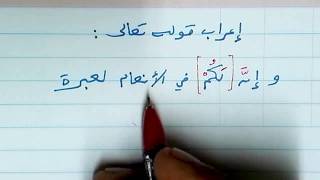 إعراب قوله تعالى :
و إنَّ [ لَكُمْ ] في الأنعام لعبرة